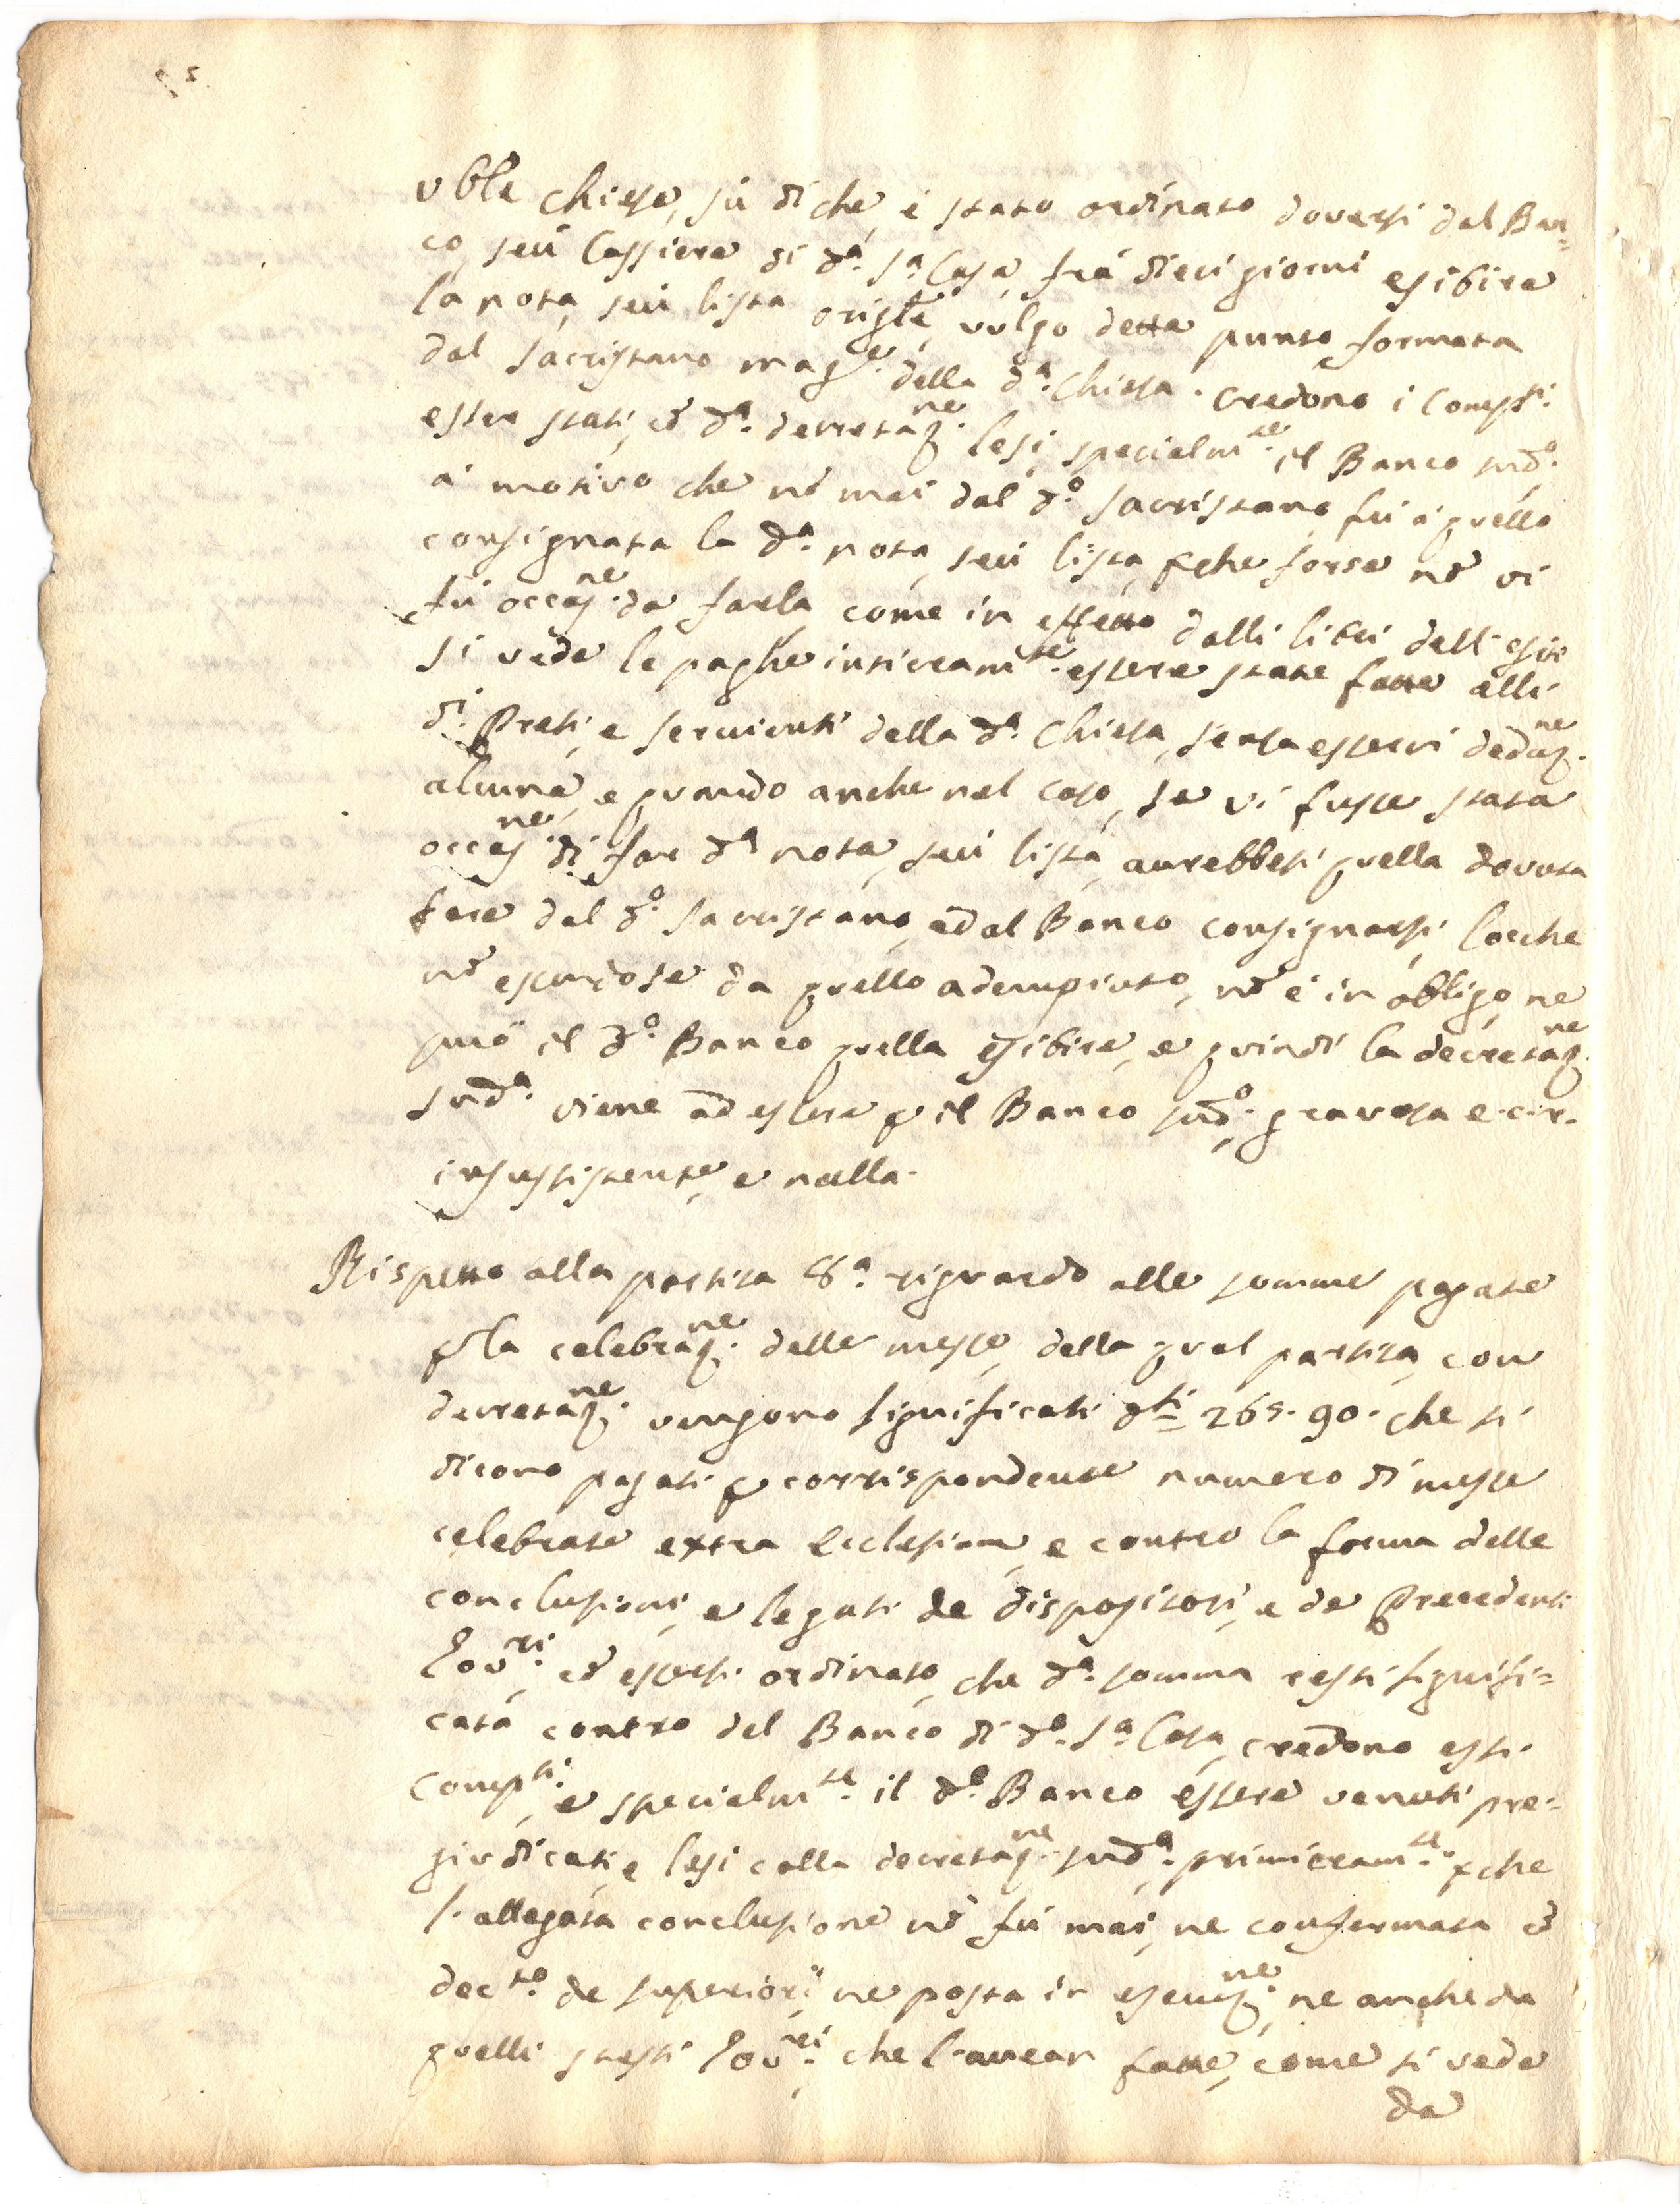 vble chiesa, sù di che è stato ordinato doversi dal Ban=
co, seù Cassiere di d.ª S.ª Casa, frà dieci giorni esibire
la nota, seù lista origle, vulgo detta punto, formata
dal sacristano mag.e della d.ª Chiesa. credono i Comp.ti
esser stati, cõ d.ª decretaz.ne lesi, specialm.te il Banco sud.º
à motivo che nõ mai dal d.º sacristano fù à quello
consignata la d.ª nota, seù lista, ꝑche forse nõ vi
fù occas.ne da farla, come in effetto dalli libri dell'esito
si vede le paghe intieram.te essere state fatte alli
d.i Preti, e servienti della d.ª Chiesa, senza esservi deduz.ne
alcuna, e quando anche nel caso, se vi fusse stata
occas.ne di far d.ª nota, seù lista, aurebbesi quella dovuta
fare dal d.º sacristano, ed al Banco consignarsi, locche
nõ essendosi da quello adempiuto, nõ è in obligo, ne
può il d.º Banco quella esibire, e quindi la decretaz.ne
sud.ª viene ad essere ꝑ il Banco sud.º gravosa e cir.
insussistente, e nulla.
Rispetto alla partita 8.ª riguardo alle somme pagate
ꝑ la celebraz.ne delle messe, della qual partita, con
decretaz.ne vengono significati d.ti 265. 90. che si
dicono pagati ꝑ corrispondente numero di messe
celebrate extra Ecclesiam, e contro la forma delle
conclusioni, e legati de dispositori, e de Precedenti
Gov.ri, cõ essersi ordinato, che d.ª somma resti signifi=
cata contro del Banco di d.ª S.ª Casa, credono essi
Comp.ti, e specialm.te il d.º Banco essere venuti pre=
giudicati, e lesi colla decretaz.ne sud.ª, primieram.te ꝑche
l'allegata conclusione nõ fù mai, ne confermata cõ
dec.to de superiori, ne posta in esecuz.ne, ne anche da
quelli stessi Gov.ri, che l'avean fatta, come si vede
da